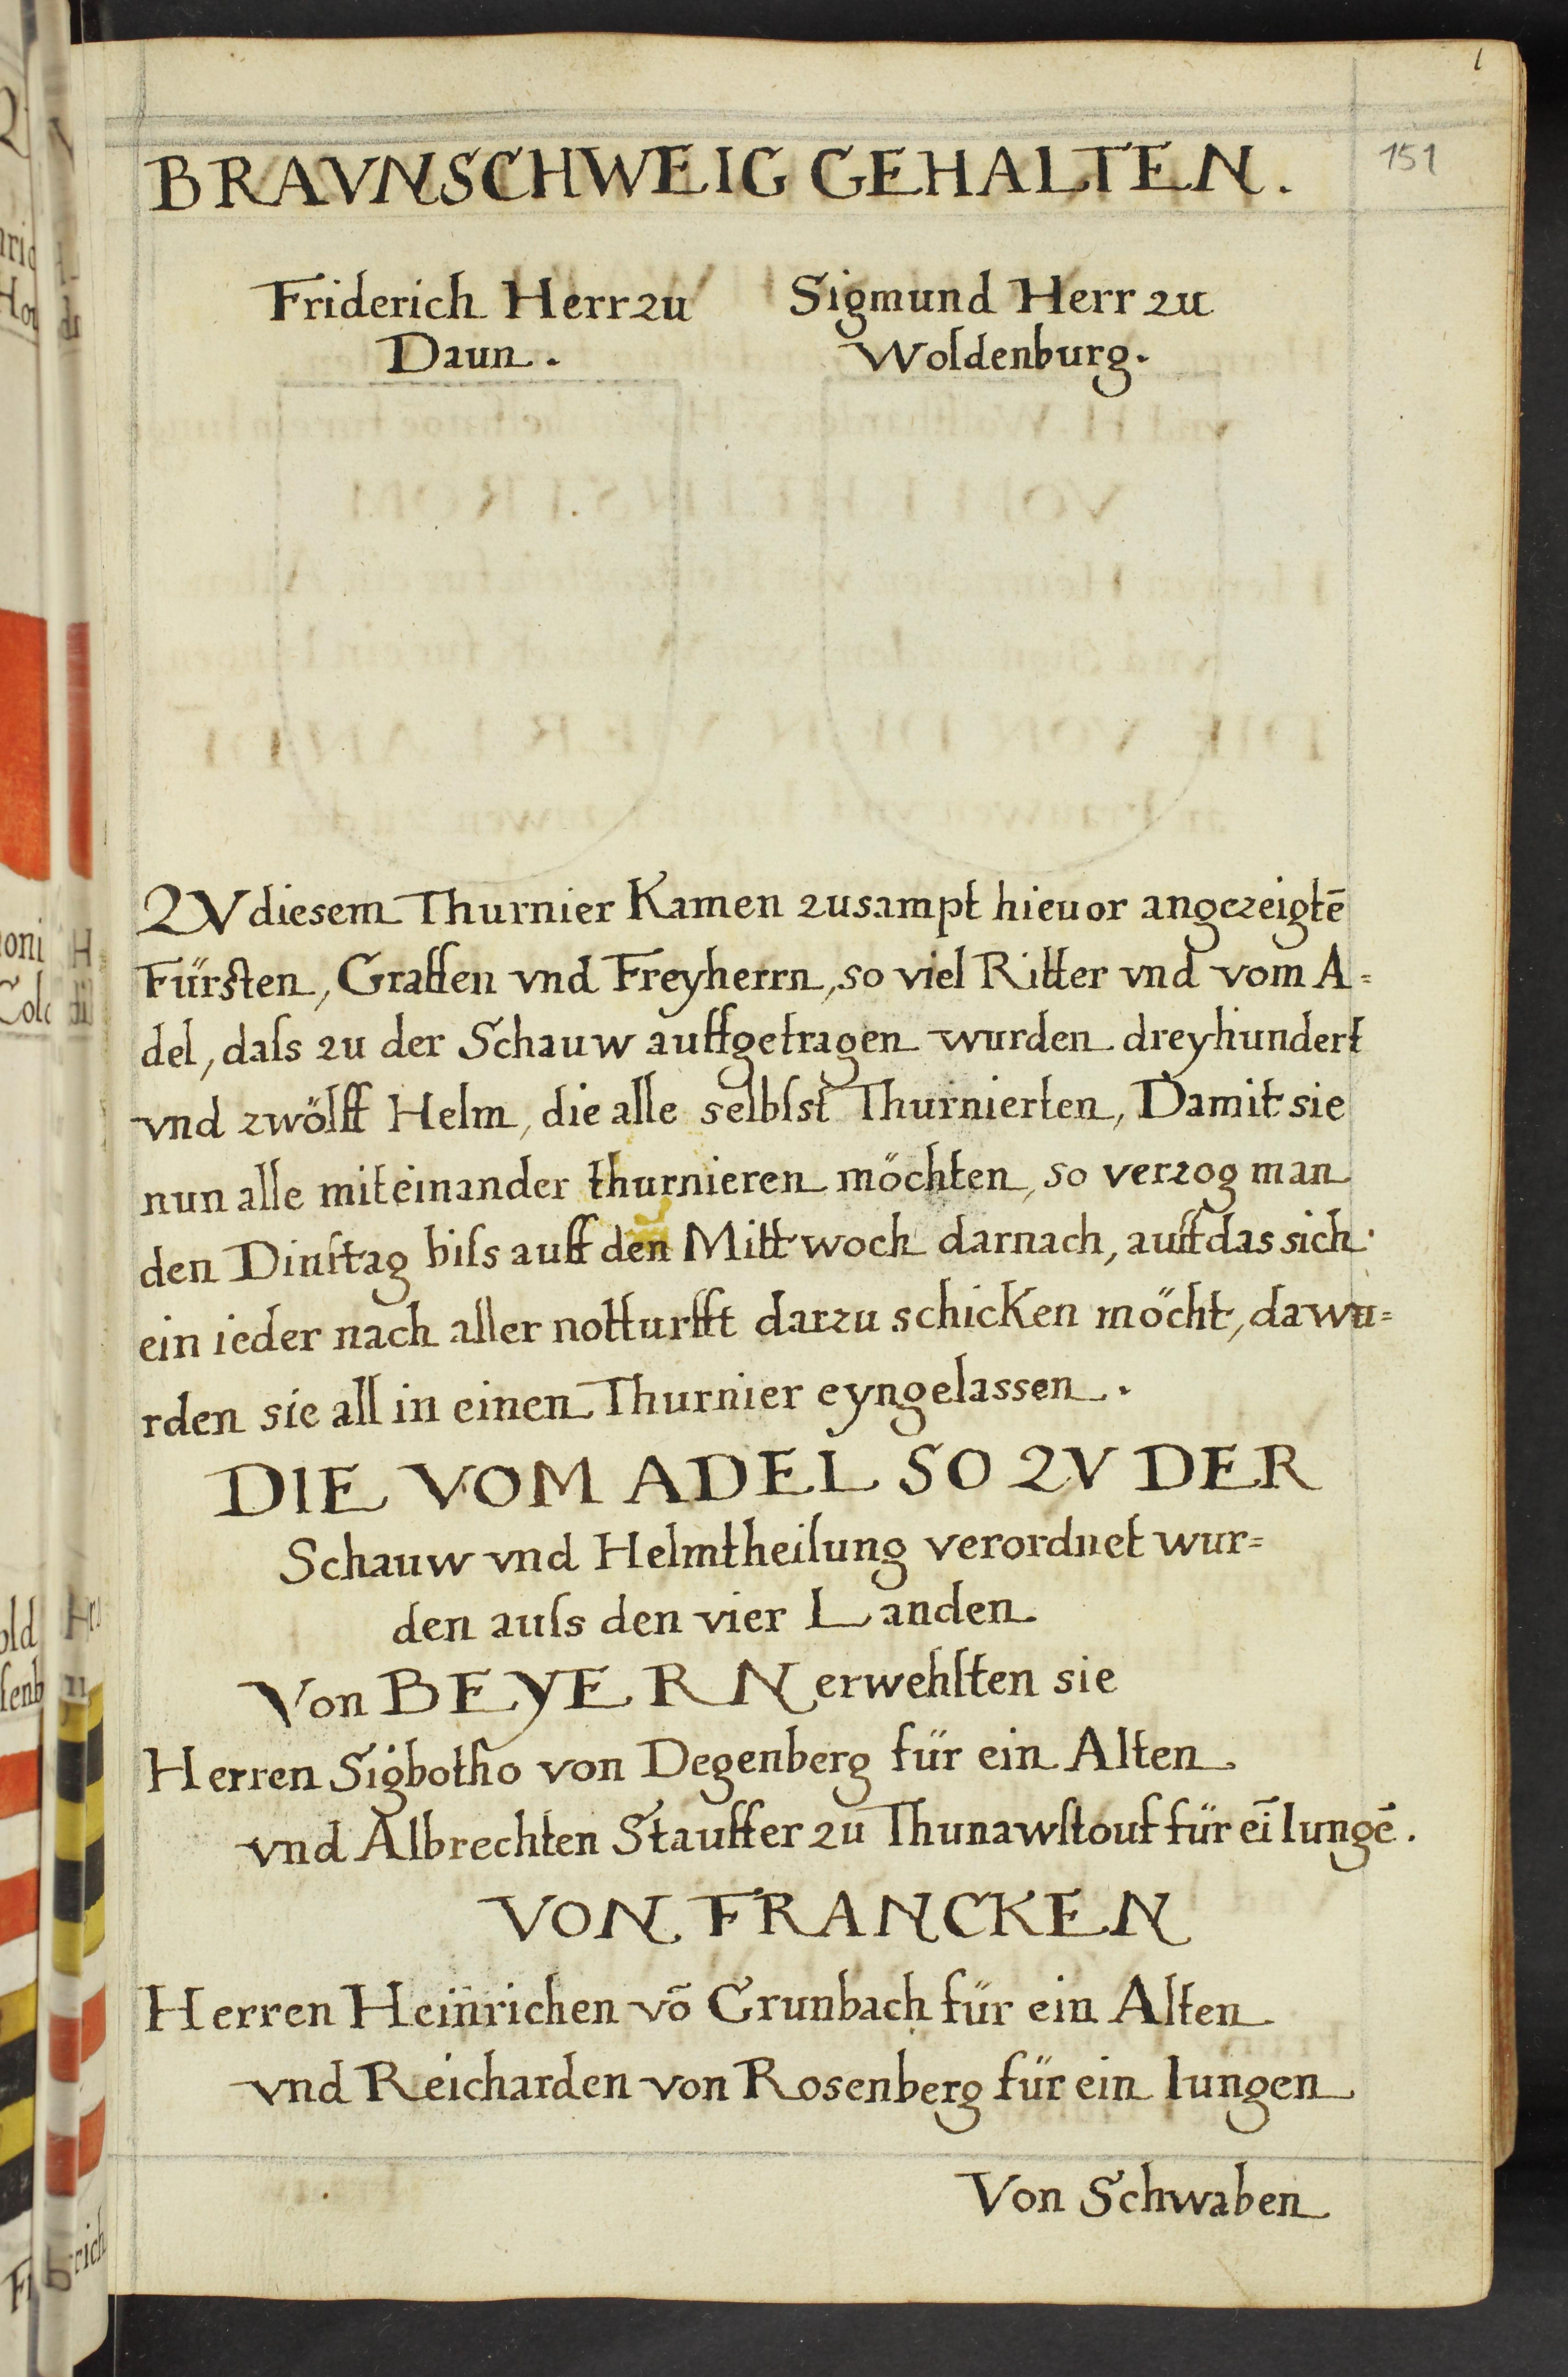 151
BRAVNSCHWEIG GEHALTEN.
Friderich Herr zu
Daun.
Sigmund Herr zu
Woldenburg.
ZV diesem Thurnier Kamen zusampt hieuor angezeigtē
Fürsten, Graffen vnd Freyherrn, so viel Ritter vnd vom A=
del, daſs zu der Schauw auffgetragen wurden dreyhundert
vnd zwölff Helm, die alle selbſst Thurnierten, Damit sie
nun alle miteinander thurnieren möchten, so verzog man
den Dinſtag biſs auff den Mittwoch darnach, auff das sich
ein ieder nach aller notturfft darzu schicken möcht, da wu=
rden sie all in einen Thurnier eyngelassen.
DIE VOM ADEL SO ZV DER
Schauw vnd Helmtheilung verordnet wur=
den auſs den vier Landen
Von BEYERN erwehlten sie
Herren Sigbotho von Degenberg für ein Alten
vnd Albrechten Stauffer zu Thunawſtouf für eī Iungē.
VON FRANCKEN
Herren Heinrichen vō Grunbach für ein Alten
vnd Reicharden von Rosenberg für ein Iungen
Von Schwaben